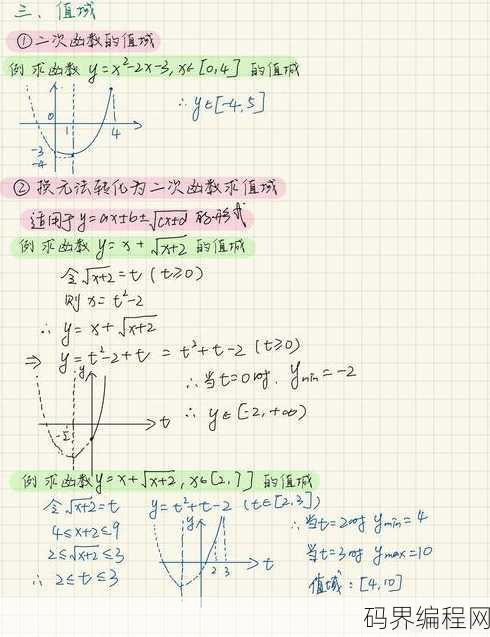 三、值域
①二次函数的值域
例 求函数 y=x²-2x-3, x∈[0,4] 的值域
∴ y∈[-4,5]
0 1 4
-3
-4
② 换元法转化为二次函数求值域
适用于 y=ax±b±√cx±d 的形式
例 求函数 y=x+√x+2 的值域
令√x+2=t (t≥0)
则 x=t²-2
∴ y=x+√x+2
⇒ y=t²-2+t=t²+t-2 (t≥0)
∴当t=0时, y min=-2
∴ y∈[-2,+∞)
y
t
例 求函数y=x+√x+2, x∈[2,7] 的值域
令√x+2=t
4≤x+2≤9
2≤√x+2≤3
∴ 2≤t≤3
y=t²+t-2 (t∈[2,3])
y
2 3 t
∴当t=2时 y min=4
当t=3时 y max=10
值域:[4,10]
码界编程网